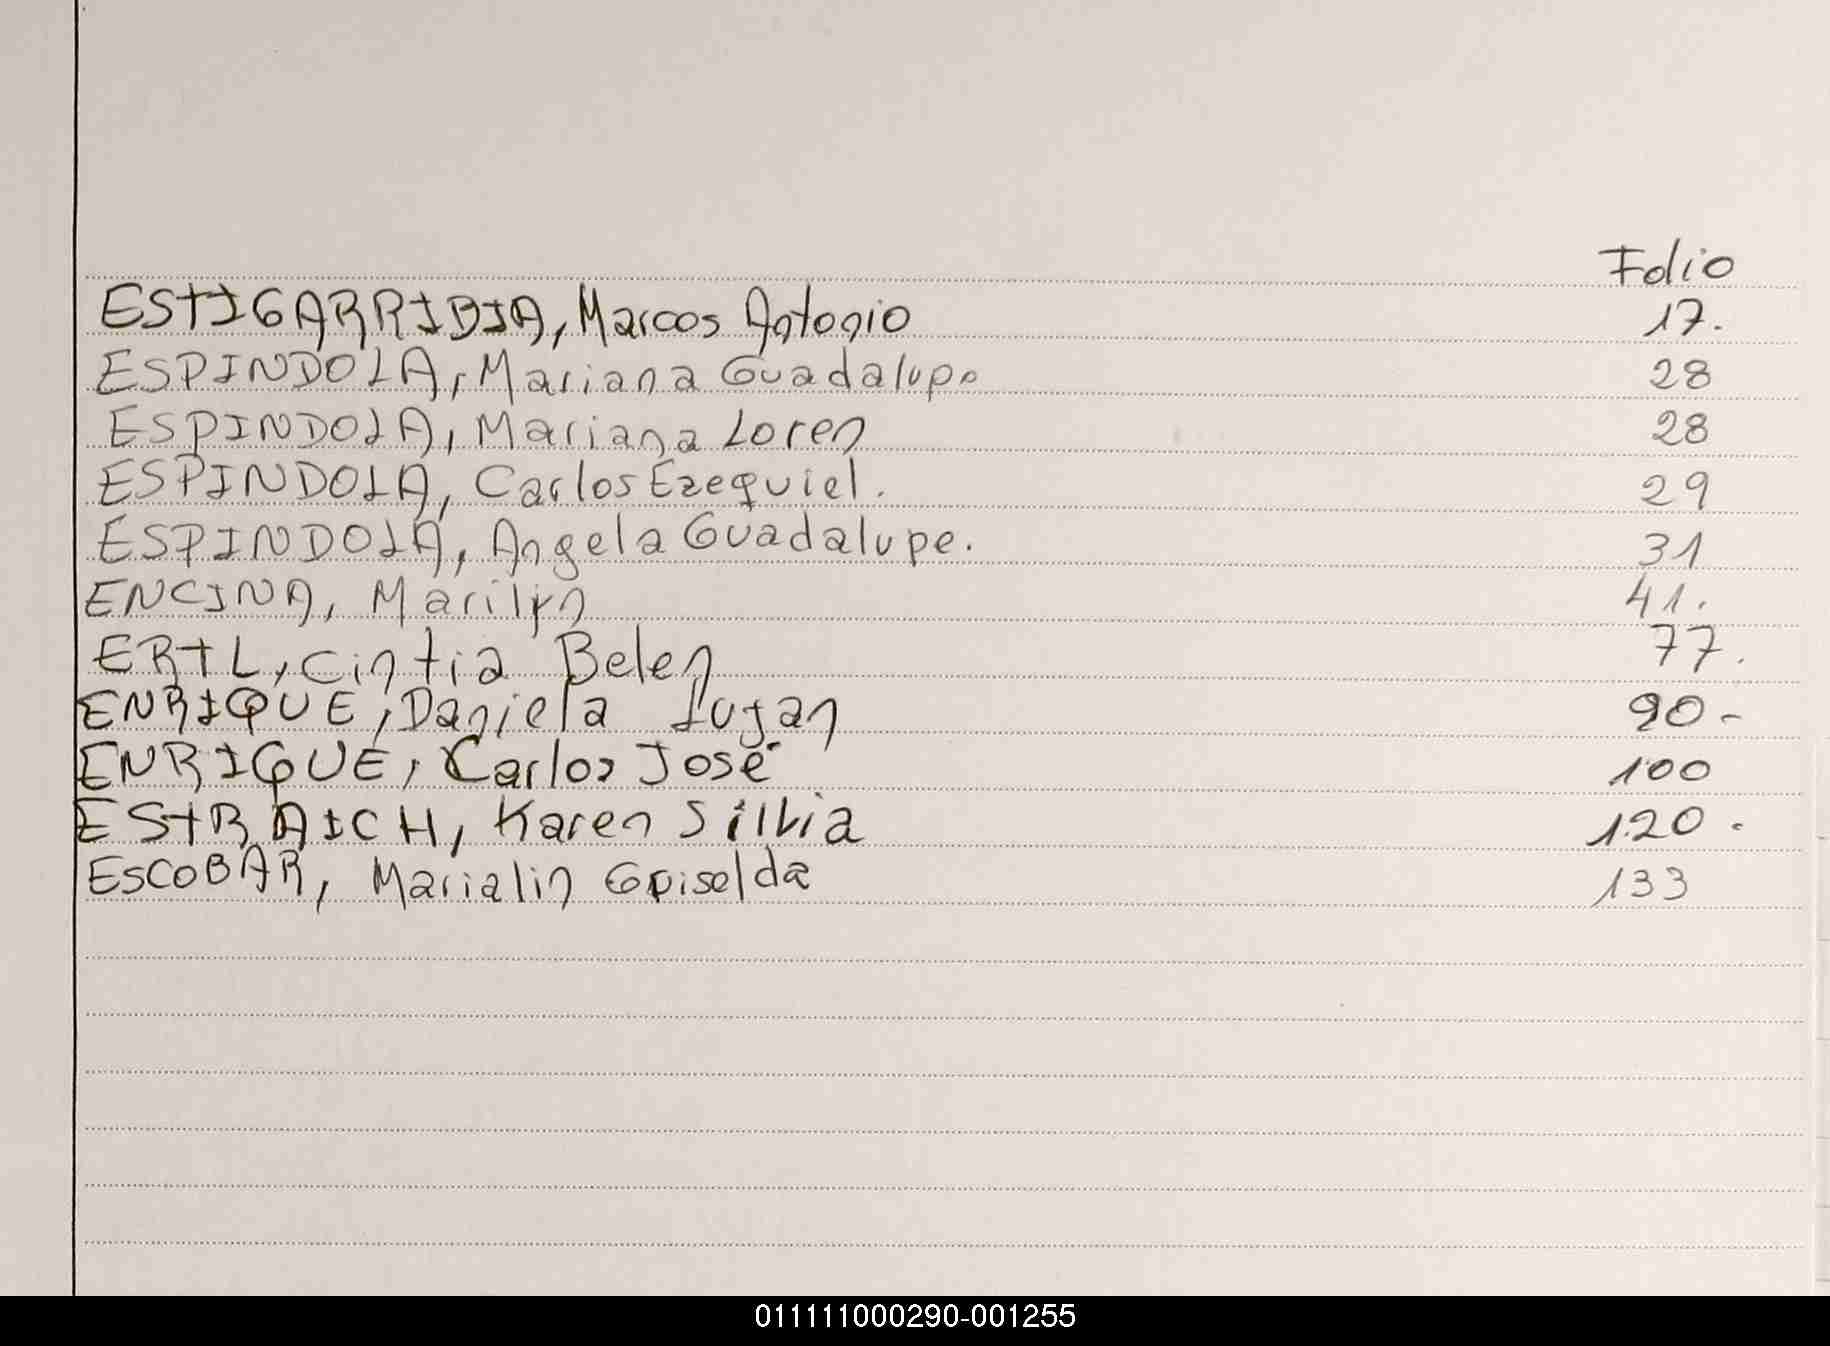 Folio
ESTIGARRIBIA, Marcos Antonio 17.
ESPINDOLA, Mariana Guadalupe 28
ESPINDOLA, Mariana Loren 28
ESPINDOLA, Carlos Ezequiel. 29
ESPINDOLA, Angela Guadalupe. 31
ENCINA, Marilyn 41.
ERTL, Cintia Belen 77.
ENRIQUE, Daniela Lujan 90-
ENRIQUE, Carlos José 100
ESTRAICH, Karen Silvia 120.
ESCOBAR, Marialin Griselda 133
011111000290-001255